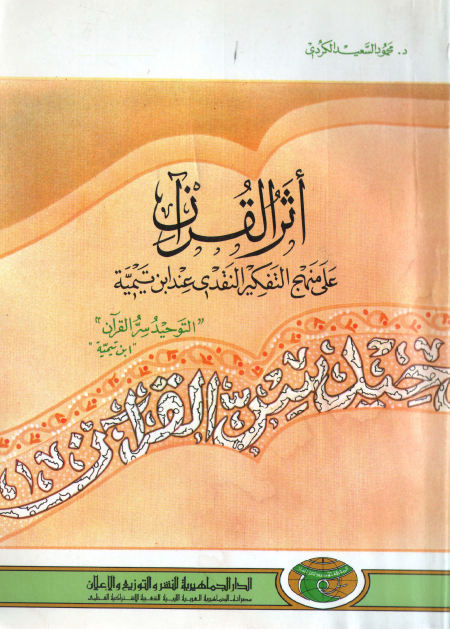 د. محمود السعيد الكردي
أثر القرآن
على منهج التفكير النقدى عند ابن تيمية
"التوحيد سر القرآن"
"ابن تيمية"
سر القرآن
الدار الجماهيرية للنشر والتوزيع والإعلان
مصراتة الجماهيرية العربية الليبية الشعبية الاشتراكية العظمى